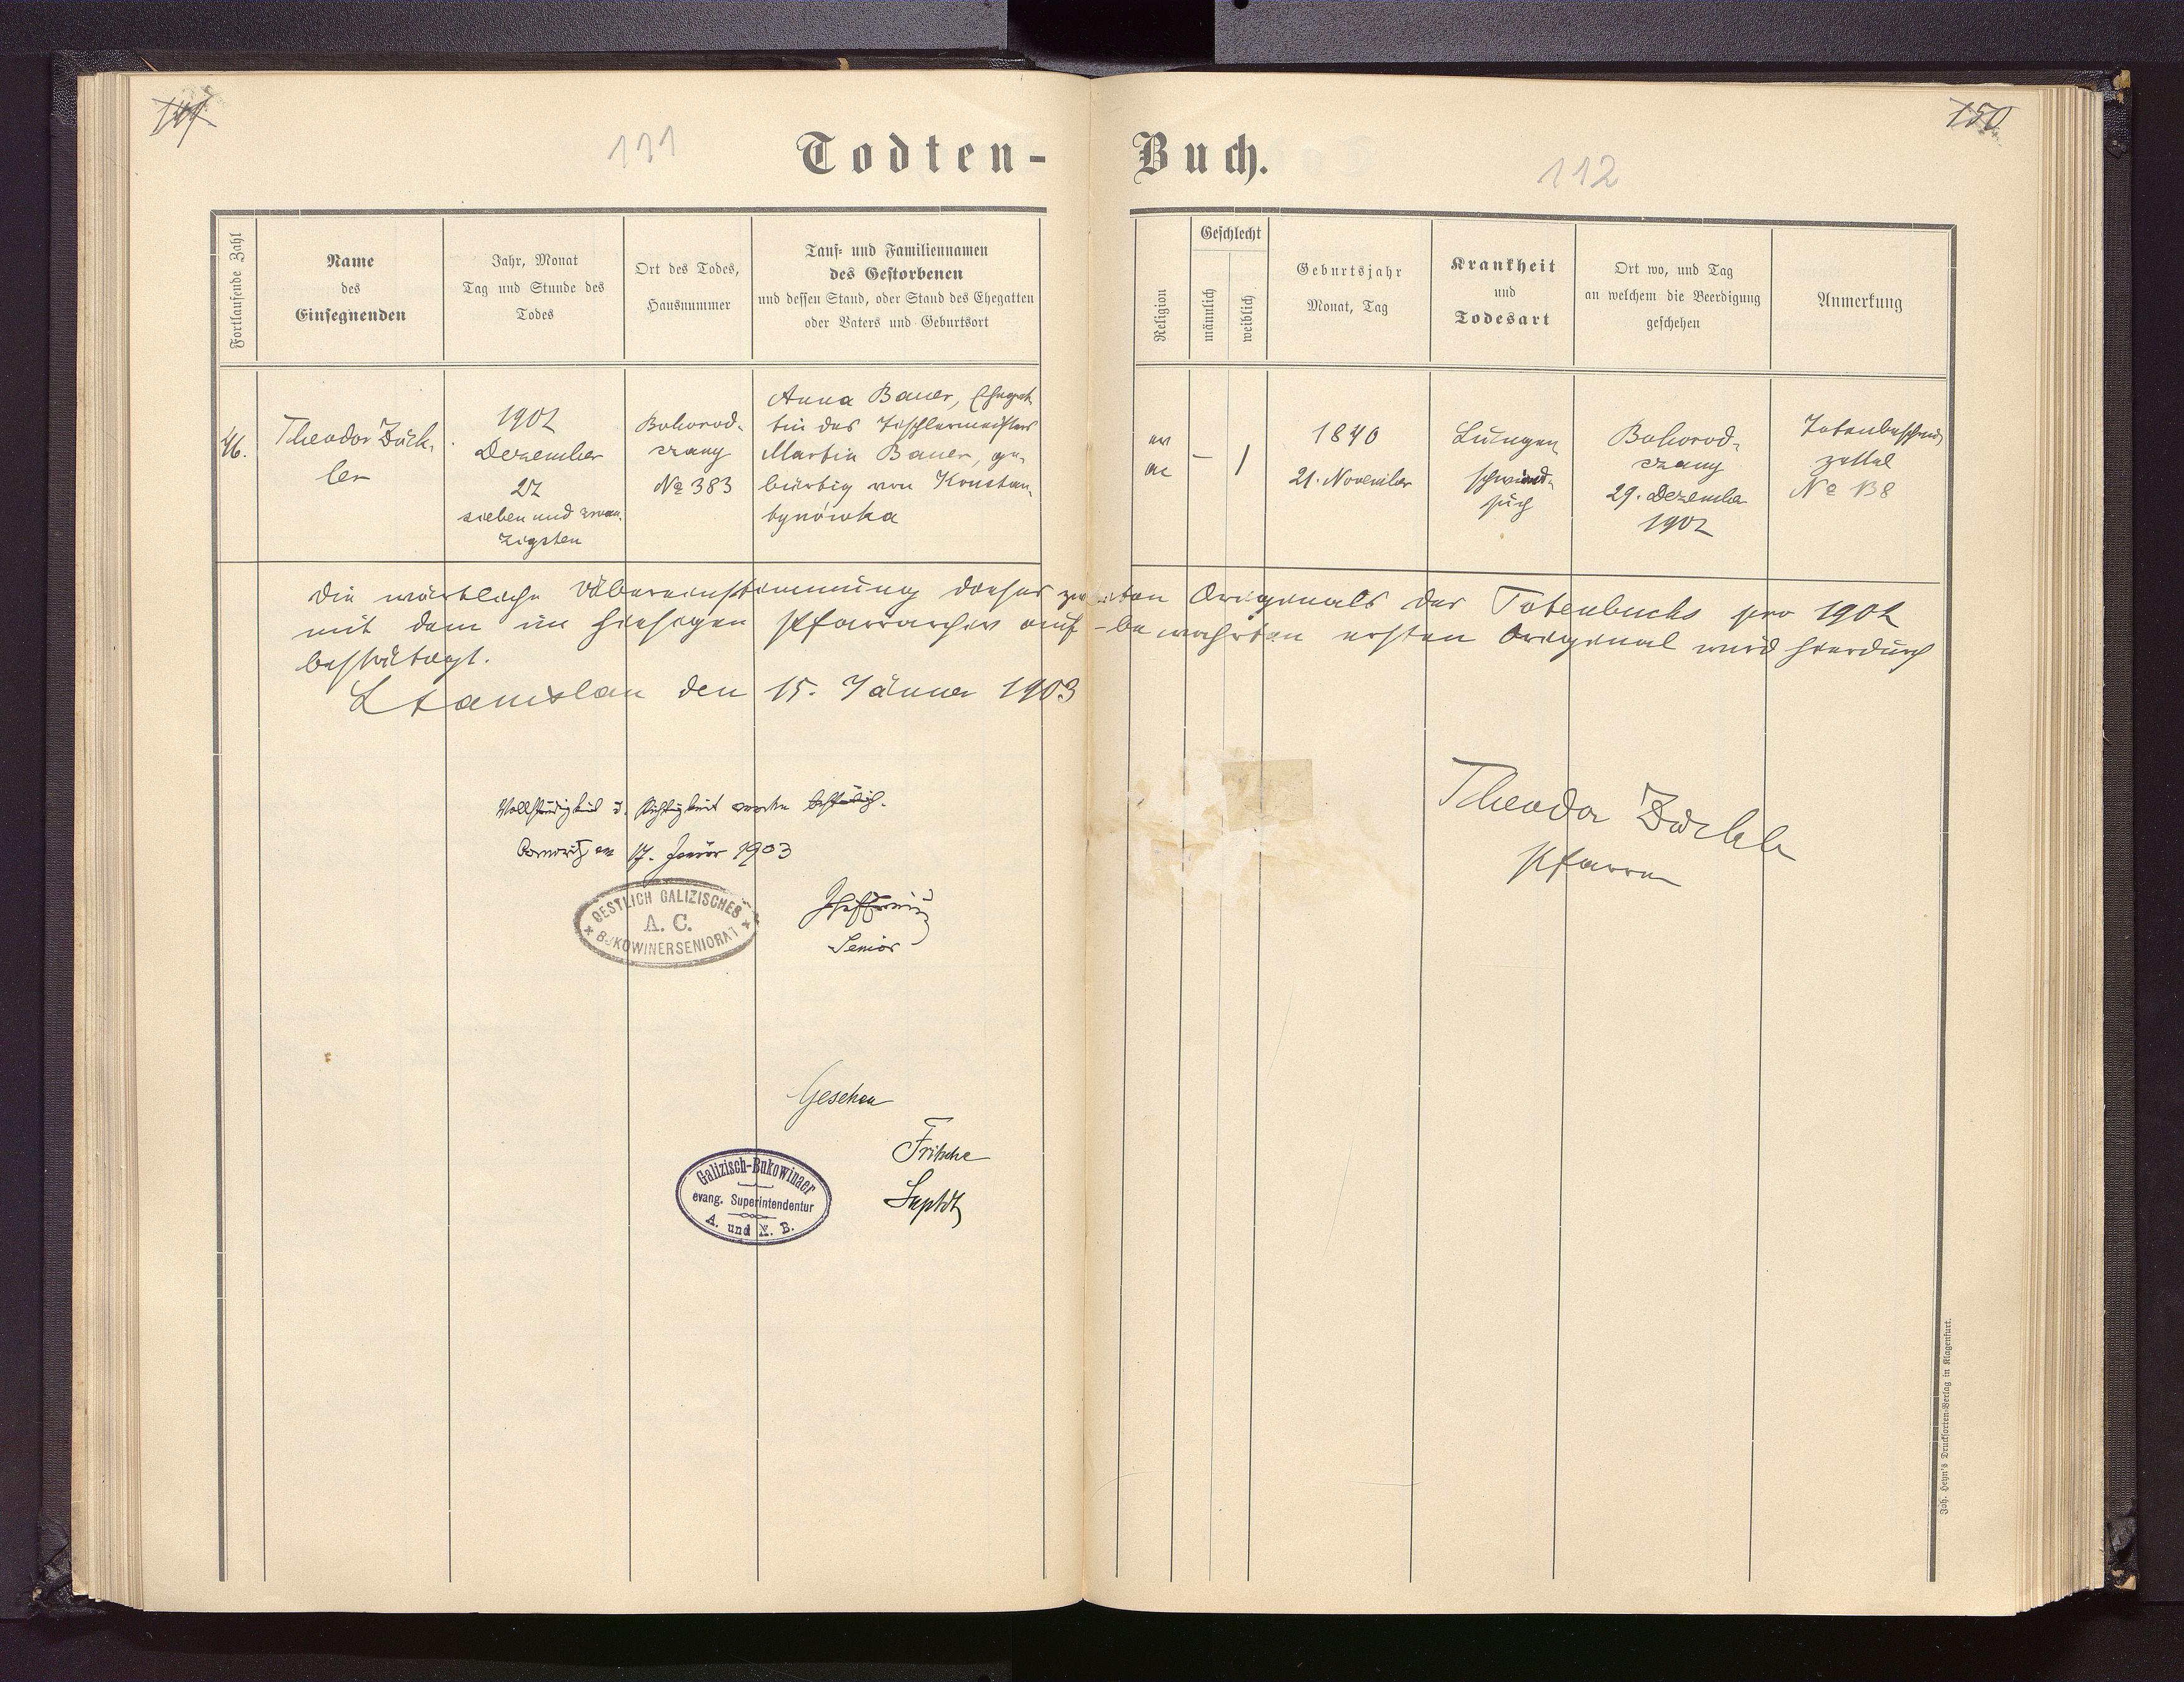 149
111
Todten-
Fortlaufende Zahl
Name
des
Einsegnenden
Jahr, Monat
Tag und Stunde des
Todes
Ort des Todes,
Hausnummer
Tauf- und Familiennamen
des Gestorbenen
und dessen Stand, oder Stand des Ehegatten
oder Vaters und Geburtsort
46.
Theodor Zöck-
ler
1902
Dezember
27
sieben und zwan-
zigsten
Bohorod-
czany
№ 383
Anna Bauer, Ehegat-
tin des Tischlermeisters
Martin Bauer, ge-
bürtig von Konstan-
tynówka
150
112
Buch.
Religion
Geschlecht
männlich
weiblich
Geburtsjahr
Monat, Tag
Krankheit
und
Todesart
Ort wo, und Tag
an welchem die Beerdigung
geschehen
Anmerkung
ev
ac
–
1
1840
21. November
Lungen
schwind-
sucht
Bohorod-
czany
29. Dezember
1902
Totenbeschau
zettel
№ 138
Die wörtliche Übereinstimmung dieses zweiten Originals des Totenbuchs pro 1902
mit dem im hiesigen Pfarrarchiv auf-bewahrten ersten Original wird hierdurch
bestätigt.
Stanislau den 15. Jänner 1903
Theodor Zöckler
Pfarrer
Vollständigkeit u. Richtigkeit bestätigt.
am 17. Januar 1903
OESTLICH GALIZISCHES
A. C.
BUKOWINERSENIORAT
Senior
Gesehen
Fritsche
Suptdt
Galizisch-Bukowinaer
evang. Superintendentur
A. und H. B.
Joh. Heyn's Drucksorten-Verlag in Klagenfurt.